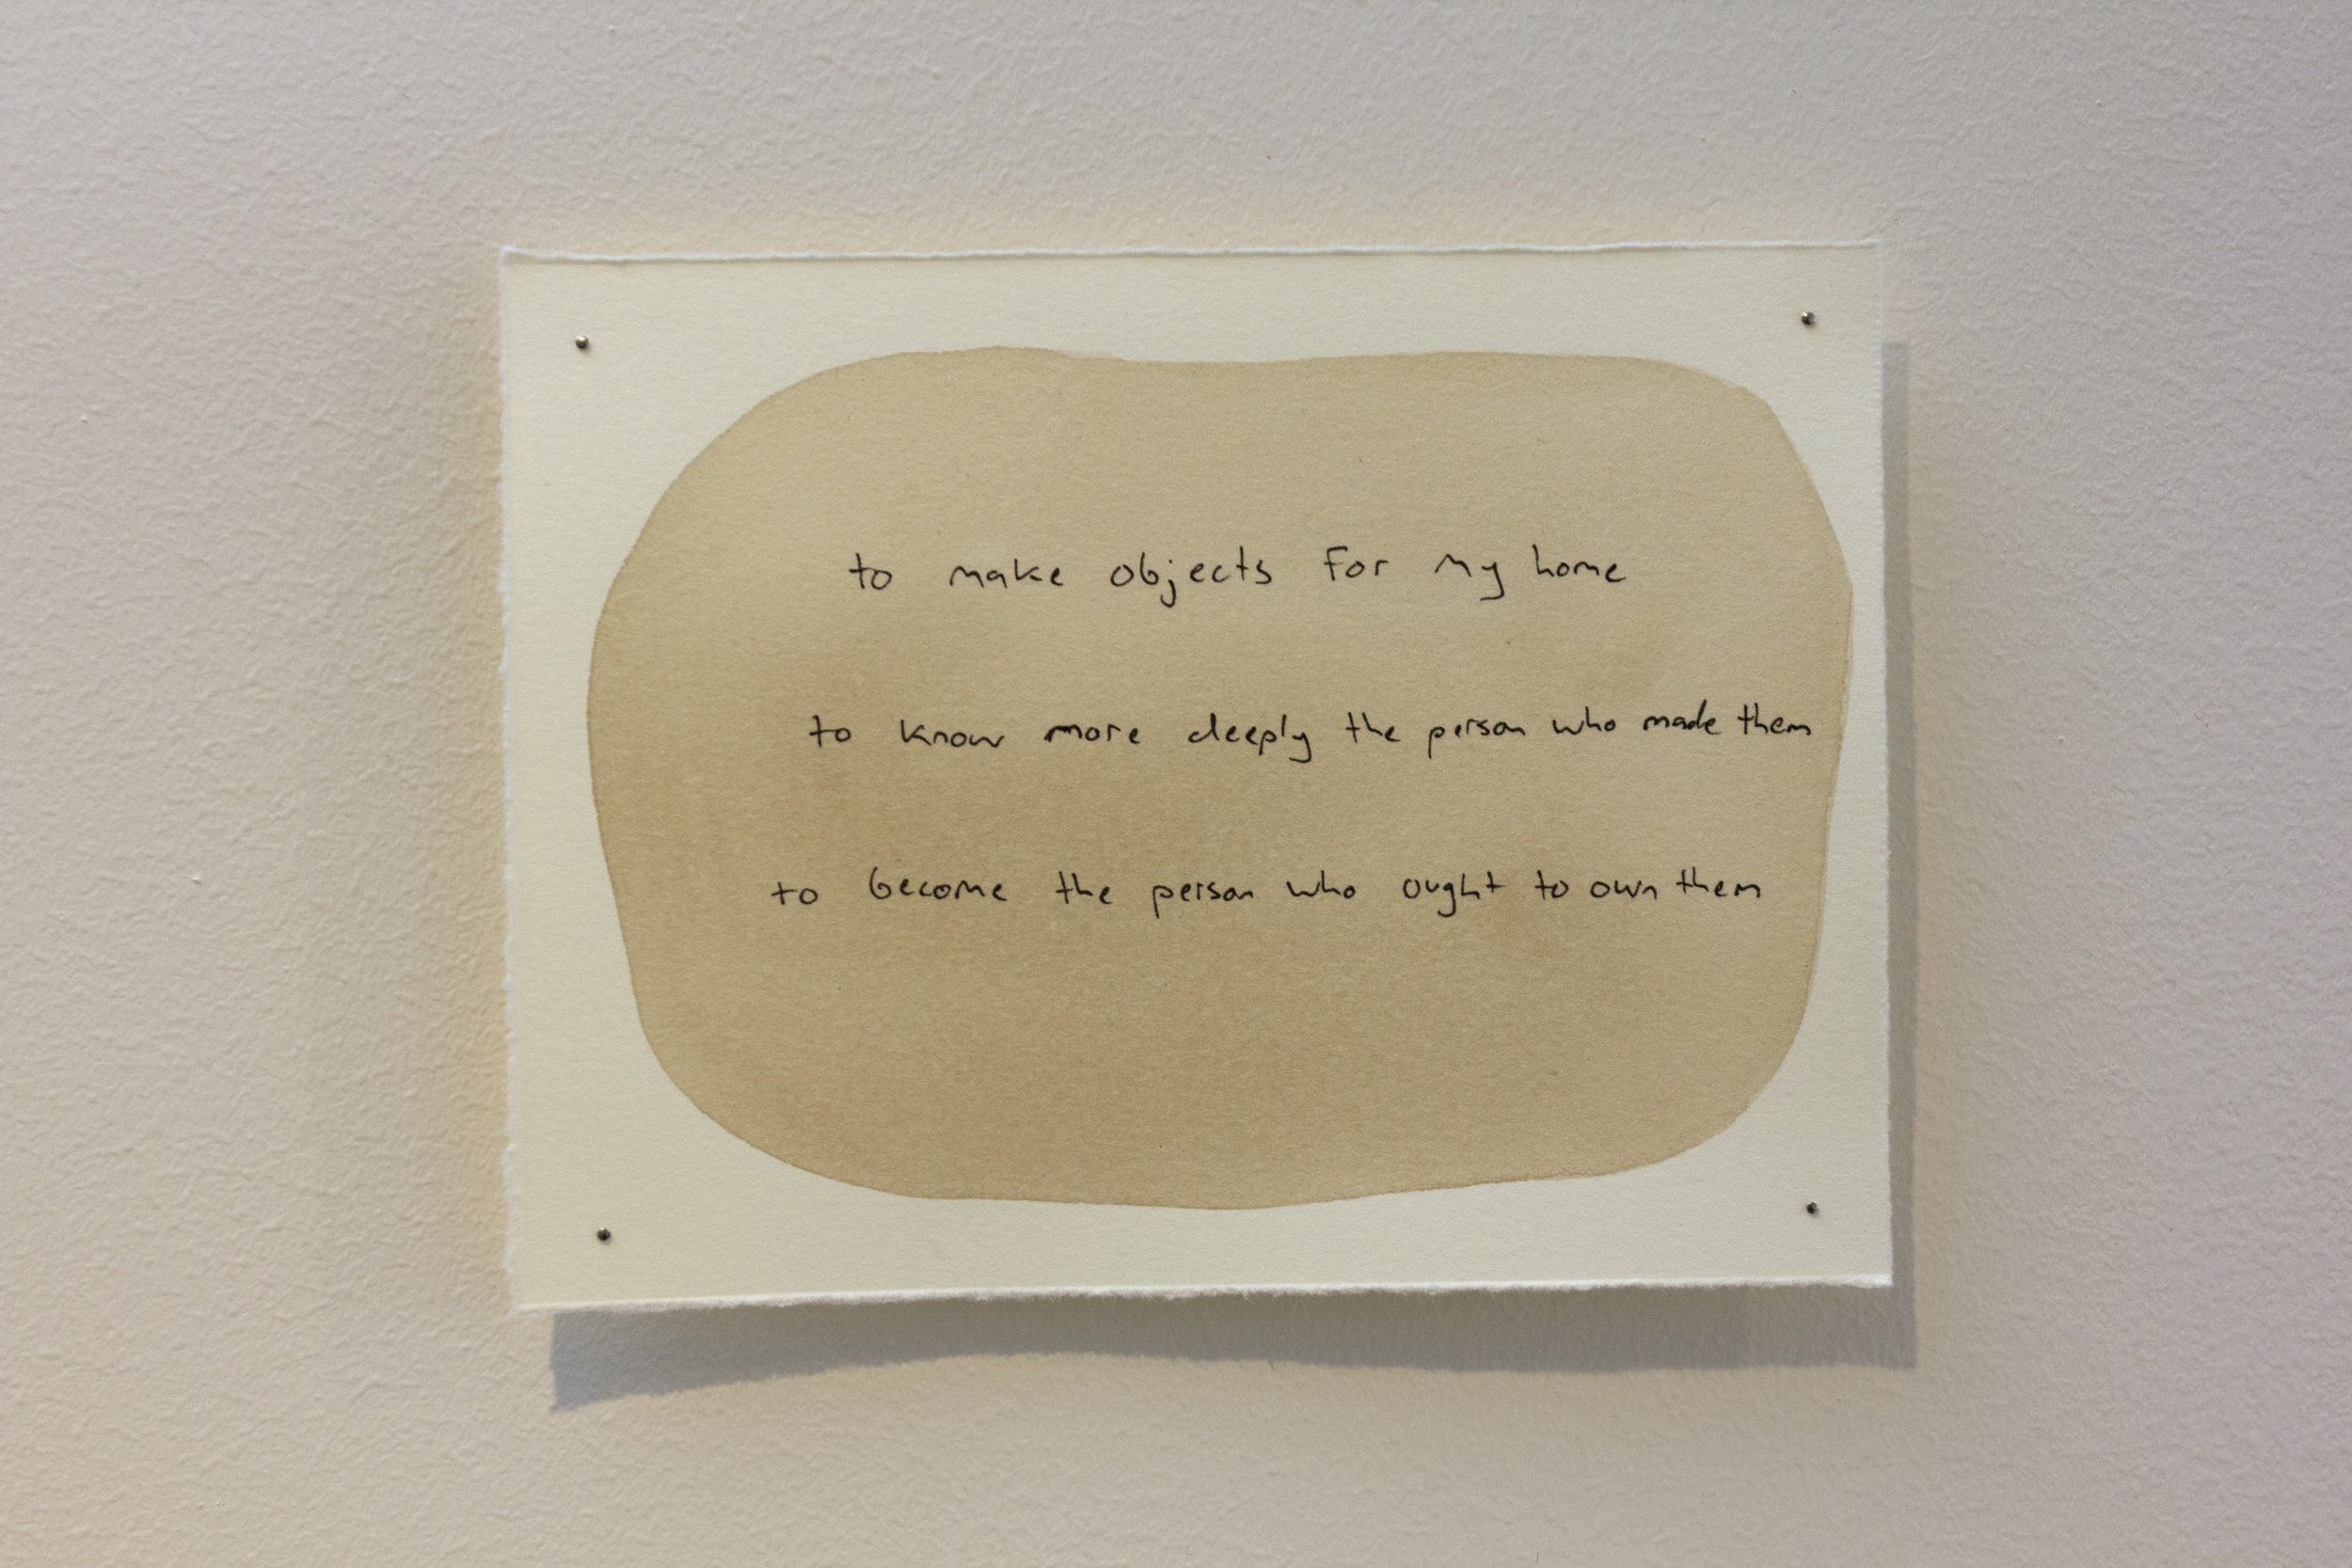 to make objects for my home
to know more deeply the person who made them
to become the person who ought to own them